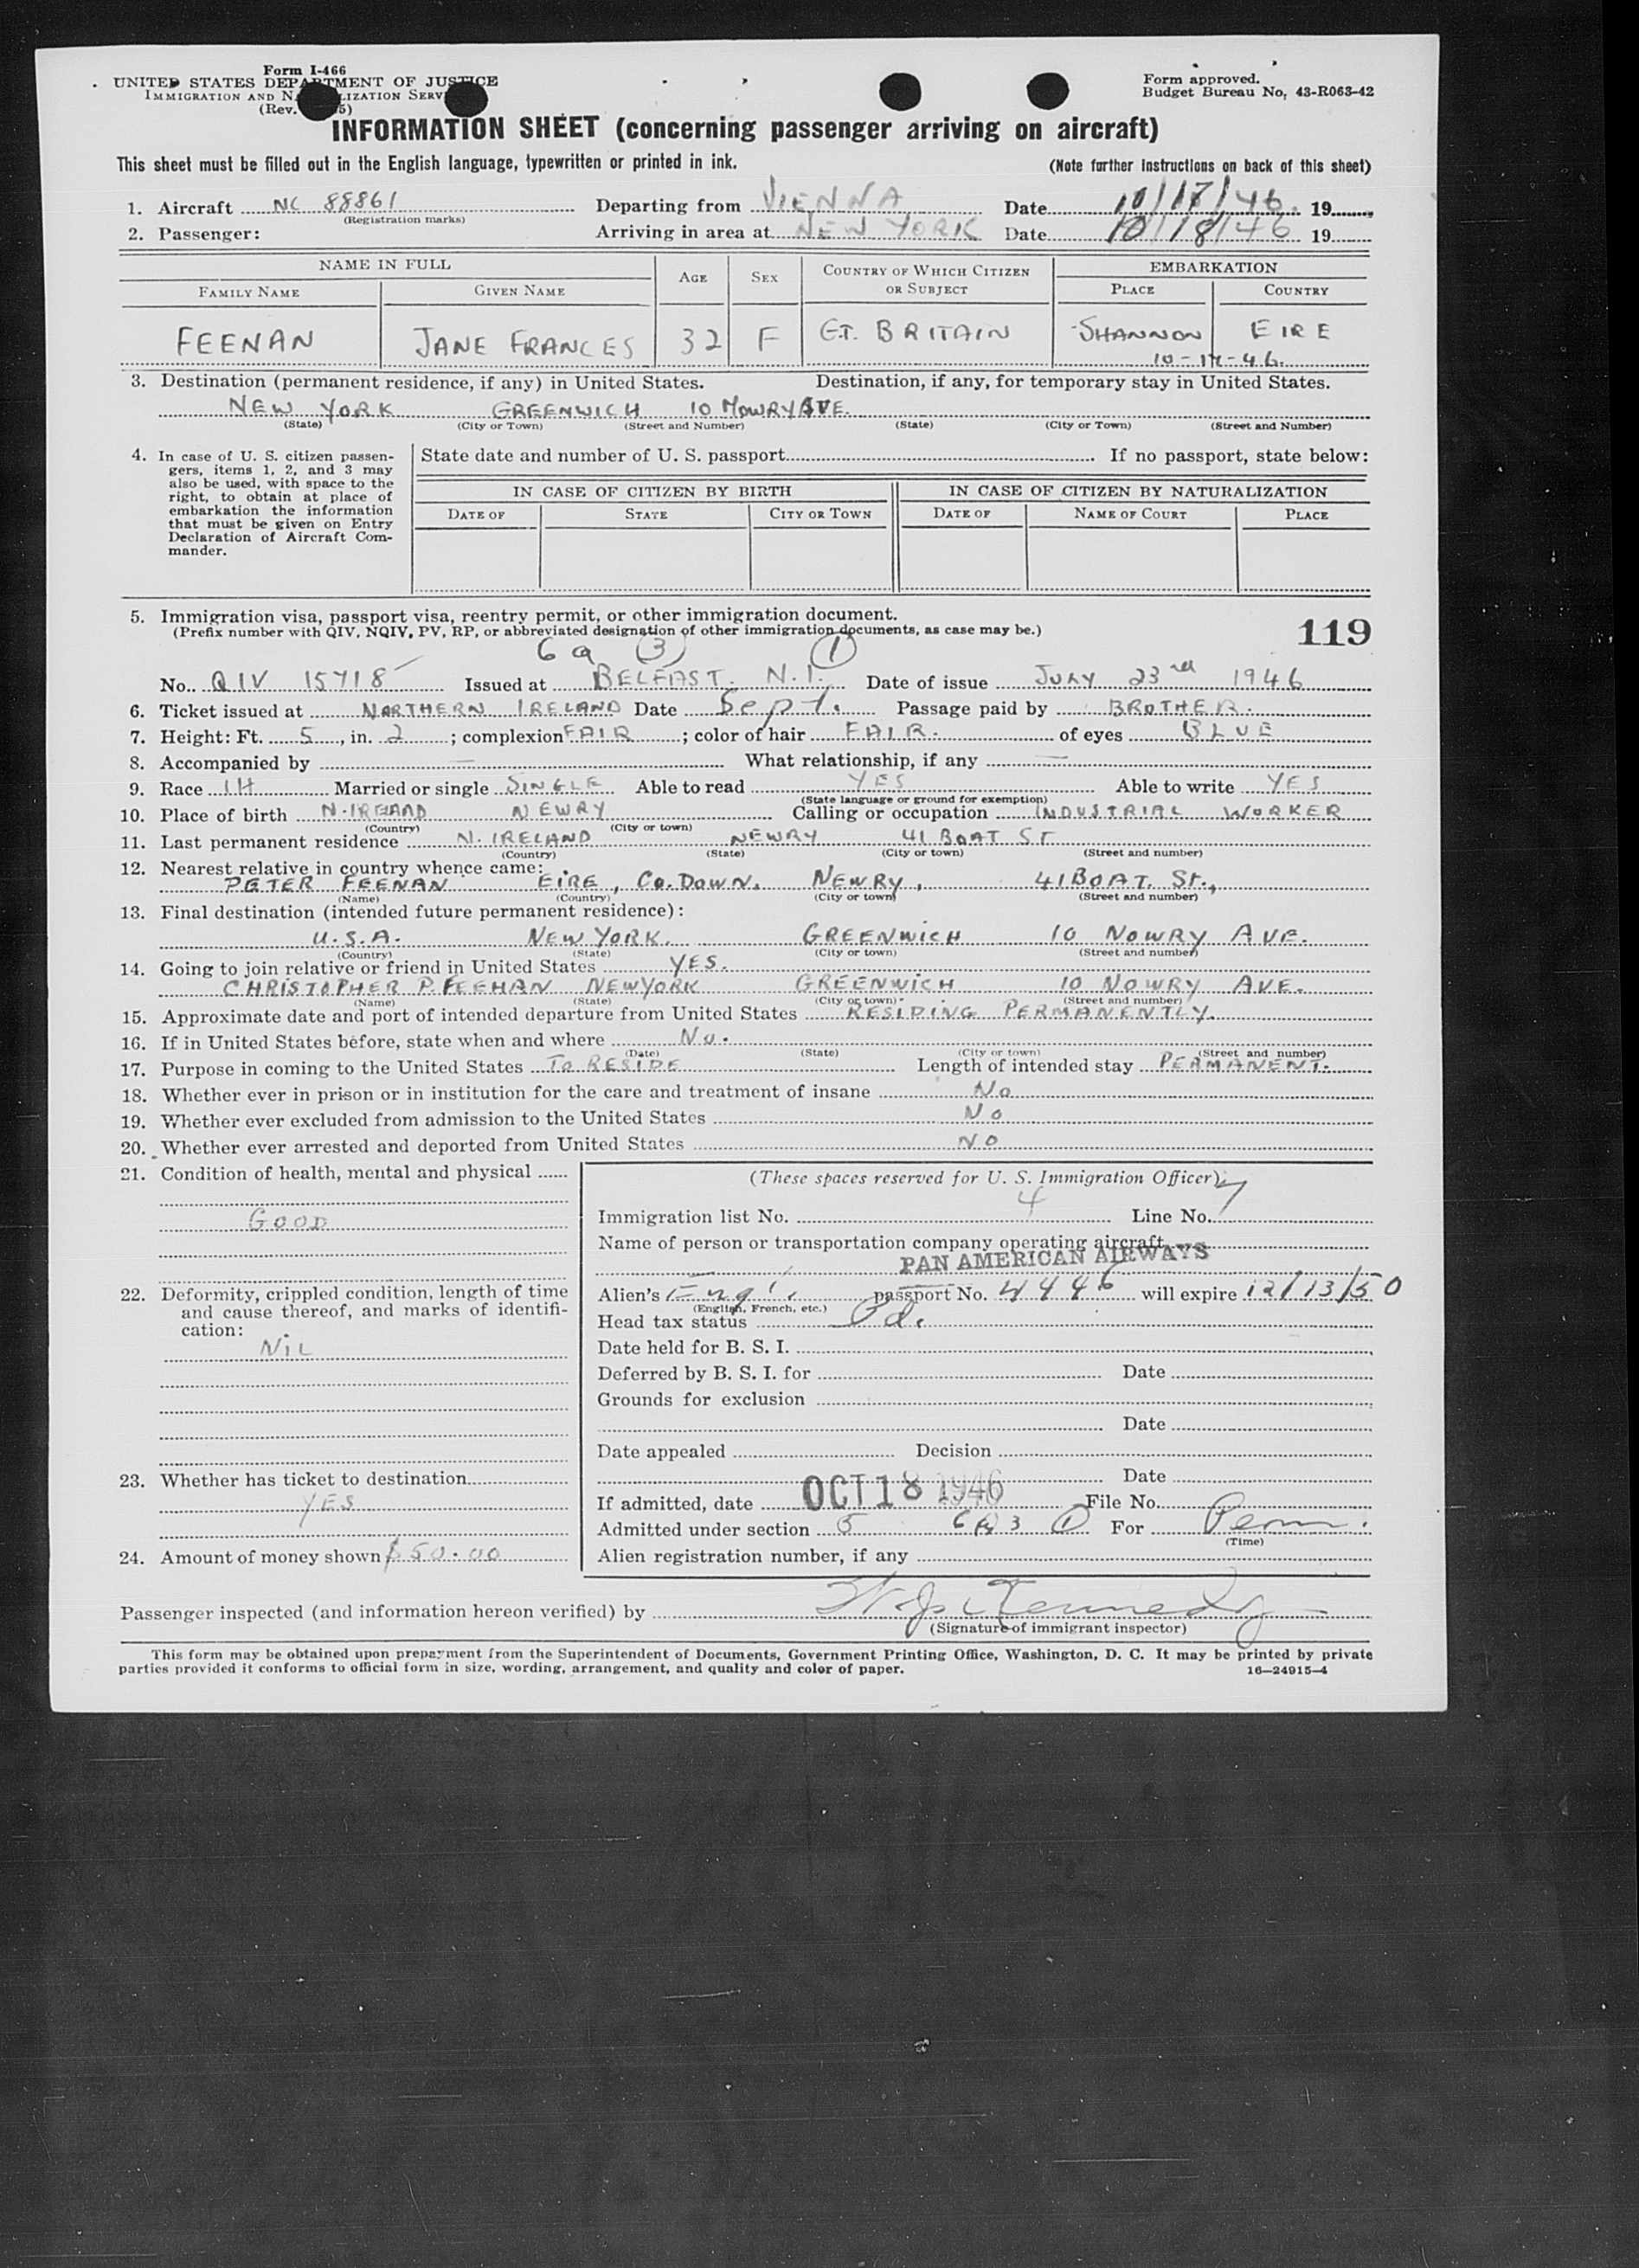 Form I-466
UNITED STATES DEPARTMENT OF JUSTICE
IMMIGRATION AND NATURALIZATION SERVICE
(Rev. 5)
Form approved.
Budget Bureau No. 43-R063-42
INFORMATION SHEET (concerning passenger arriving on aircraft)
This sheet must be filled out in the English language, typewritten or printed in ink. (Note further instructions on back of this sheet)
1. Aircraft NC 88861 Departing from VIENNA Date 10/17/46. 19
(Registration marks)
2. Passenger: Arriving in area at NEW YORK Date 10/18/46 19
NAME IN FULL AGE SEX COUNTRY OF WHICH CITIZEN OR SUBJECT EMBARKATION
FAMILY NAME GIVEN NAME PLACE COUNTRY
FEENAN JANE FRANCES 32 F GT. BRITAIN SHANNON EIRE
10-17-46.
3. Destination (permanent residence, if any) in United States. Destination, if any, for temporary stay in United States.
NEW YORK GREENWICH 10 MOWRY AVE.
(State) (City or Town) (Street and Number) (State) (City or Town) (Street and Number)
4. In case of U. S. citizen passengers, items 1, 2, and 3 may also be used, with space to the right, to obtain at place of embarkation the information that must be given on Entry Declaration of Aircraft Commander.
State date and number of U. S. passport If no passport, state below:
IN CASE OF CITIZEN BY BIRTH IN CASE OF CITIZEN BY NATURALIZATION
DATE OF STATE CITY OR TOWN DATE OF NAME OF COURT PLACE
5. Immigration visa, passport visa, reentry permit, or other immigration document.
(Prefix number with QIV, NQIV, PV, RP, or abbreviated designation of other immigration documents, as case may be.)
119
6 a (3) (1)
No. QIV 15718 Issued at BELFAST. N.I. Date of issue JULY 23rd 1946
6. Ticket issued at NORTHERN IRELAND Date Sept. Passage paid by BROTHER.
7. Height: Ft. 5, in. 2; complexion FAIR; color of hair FAIR. of eyes BLUE
8. Accompanied by — What relationship, if any —
9. Race IH Married or single SINGLE Able to read YES Able to write YES
(State language or ground for exemption)
10. Place of birth N. IRELAND NEWRY Calling or occupation INDUSTRIAL WORKER
(Country) (City or town)
11. Last permanent residence N. IRELAND NEWRY 41 BOAT ST
(Country) (State) (City or town) (Street and number)
12. Nearest relative in country whence came:
PETER FEENAN EIRE, CO. DOWN. NEWRY, 41 BOAT. ST.,
(Name) (Country) (City or town) (Street and number)
13. Final destination (intended future permanent residence):
U.S.A. NEW YORK. GREENWICH 10 NOWRY AVE.
(Country) (State) (City or town) (Street and number)
14. Going to join relative or friend in United States YES.
CHRISTOPHER P. FEEHAN NEWYORK GREENWICH 10 NOWRY AVE.
(Name) (State) (City or town) (Street and number)
15. Approximate date and port of intended departure from United States RESIDING PERMANENTLY.
16. If in United States before, state when and where No.
(Date) (State) (City or town) (Street and number)
17. Purpose in coming to the United States TO RESIDE Length of intended stay PERMANENT.
18. Whether ever in prison or in institution for the care and treatment of insane No
19. Whether ever excluded from admission to the United States No
20. Whether ever arrested and deported from United States NO
21. Condition of health, mental and physical
GOOD
22. Deformity, crippled condition, length of time and cause thereof, and marks of identification:
NIL
23. Whether has ticket to destination
YES
24. Amount of money shown $50.00
(These spaces reserved for U. S. Immigration Officer)
Immigration list No. 4 Line No. 7
Name of person or transportation company operating aircraft
PAN AMERICAN AIRWAYS
Alien's Engl. passport No. 4446 will expire 12/13/50
(English, French, etc.)
Head tax status Pd.
Date held for B. S. I.
Deferred by B. S. I. for Date
Grounds for exclusion
Date
Date appealed Decision
Date
If admitted, date OCT 18 1946 File No.
Admitted under section 5 6 (a) 3 (1) For Perm.
(Time)
Alien registration number, if any
Passenger inspected (and information hereon verified) by Kennedy
(Signature of immigrant inspector)
This form may be obtained upon prepayment from the Superintendent of Documents, Government Printing Office, Washington, D. C. It may be printed by private
parties provided it conforms to official form in size, wording, arrangement, and quality and color of paper. 16—24915-4